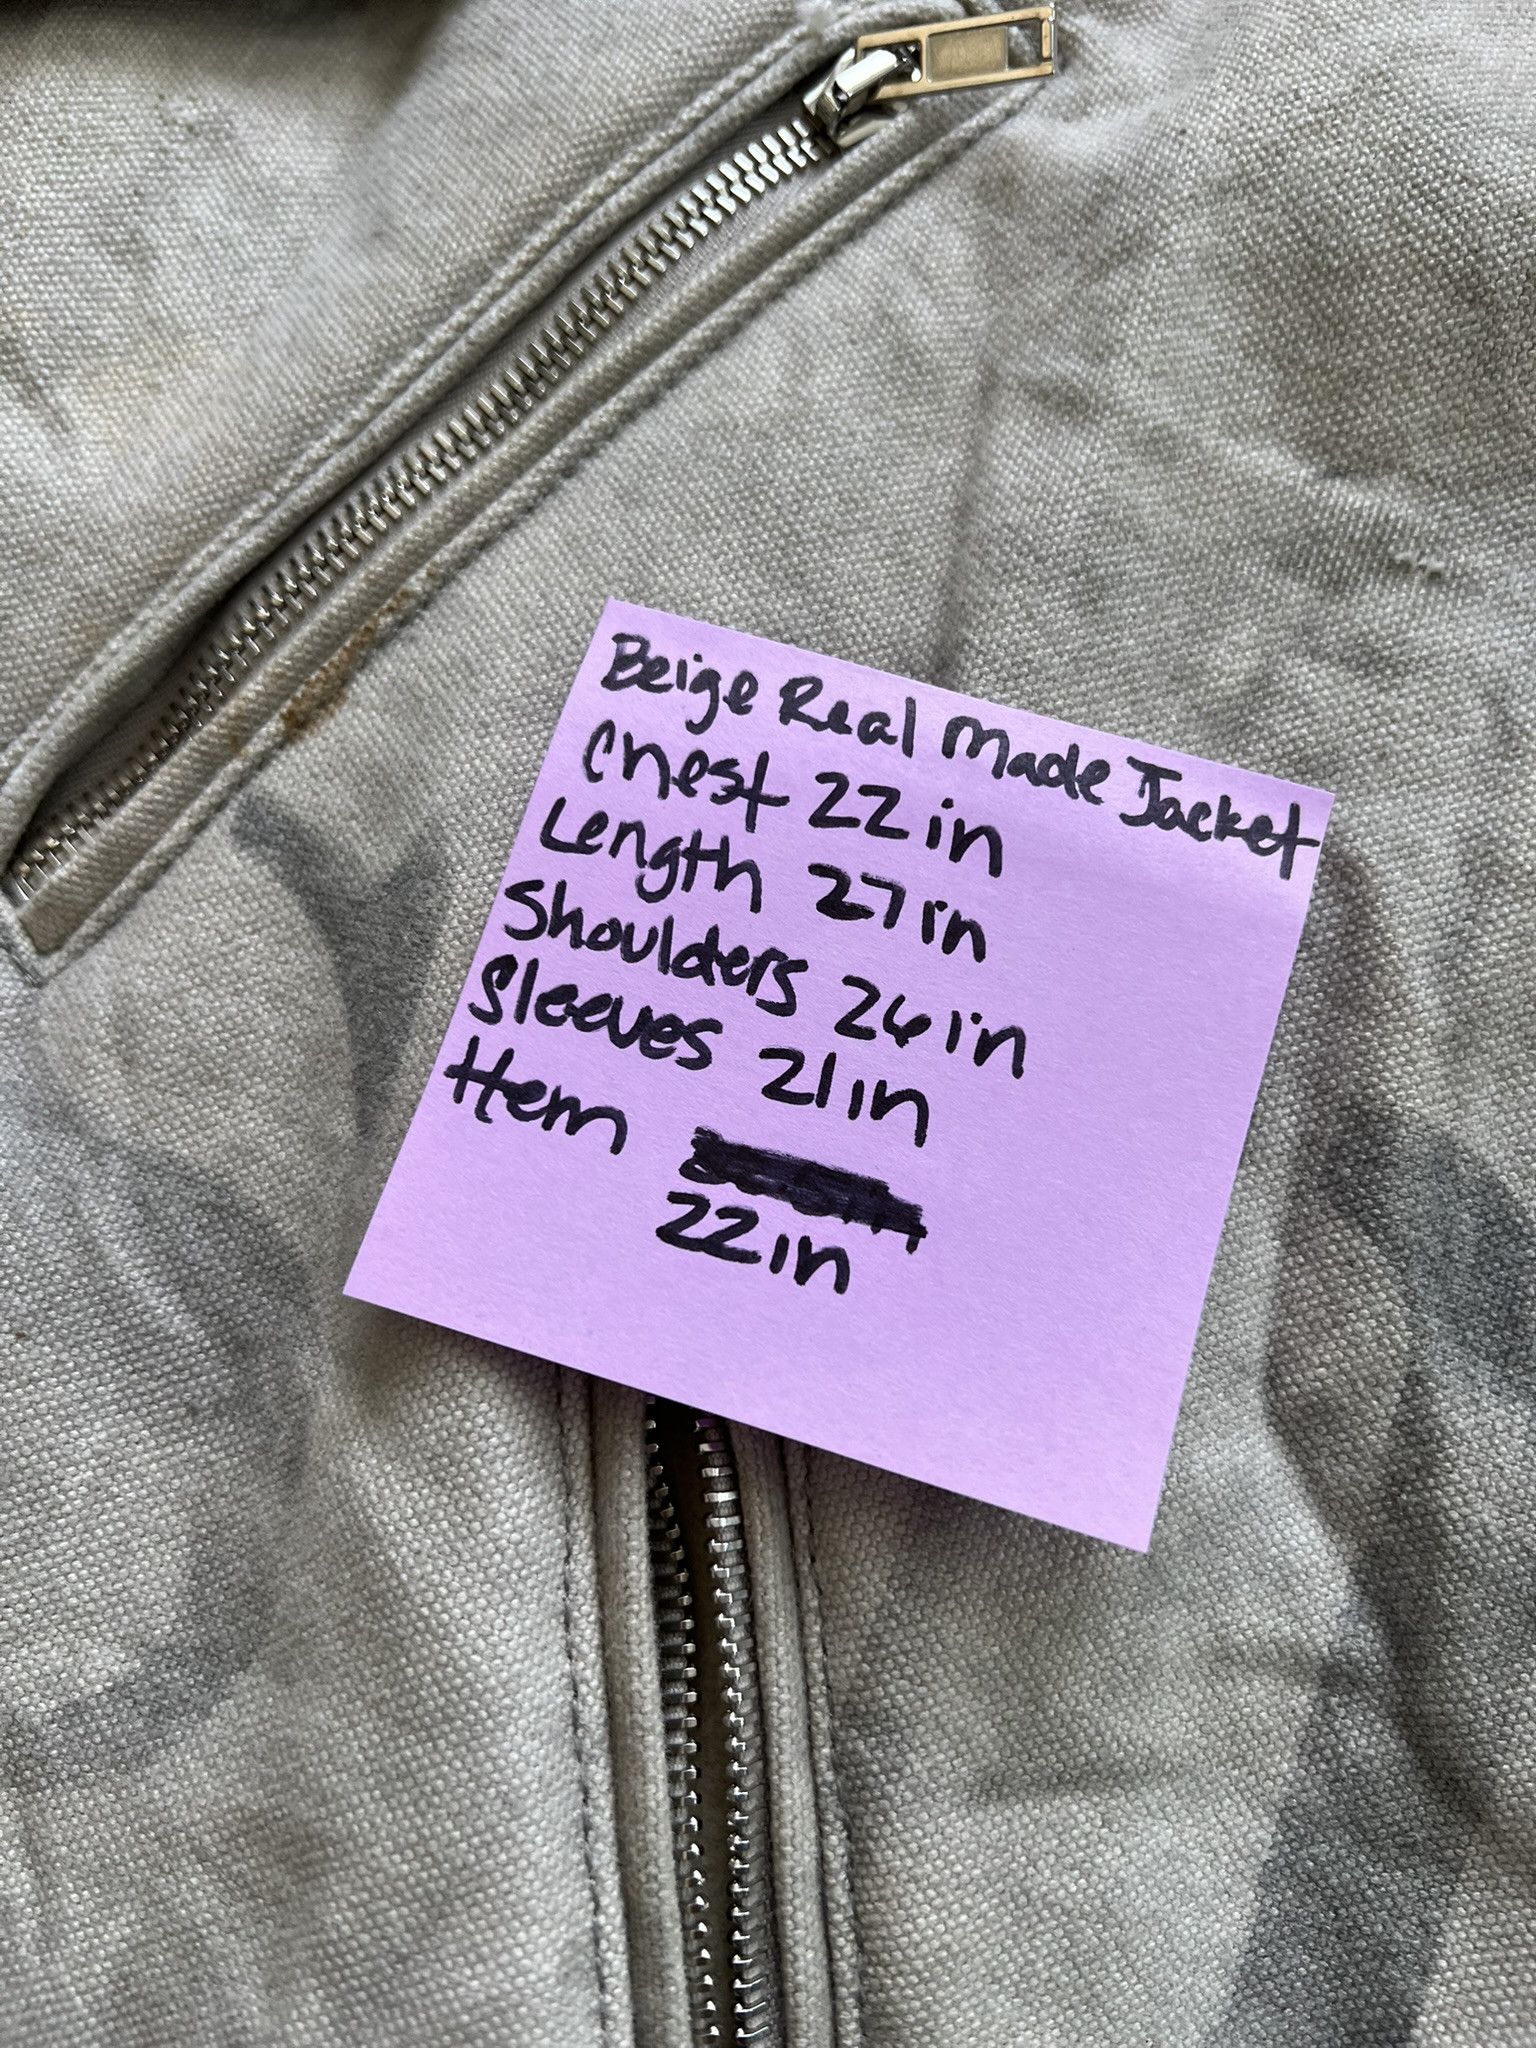 Beige Real Made Jacket
Chest 22in
Length 27in
Shoulders 26in
Sleeves 21in
Hem
22in